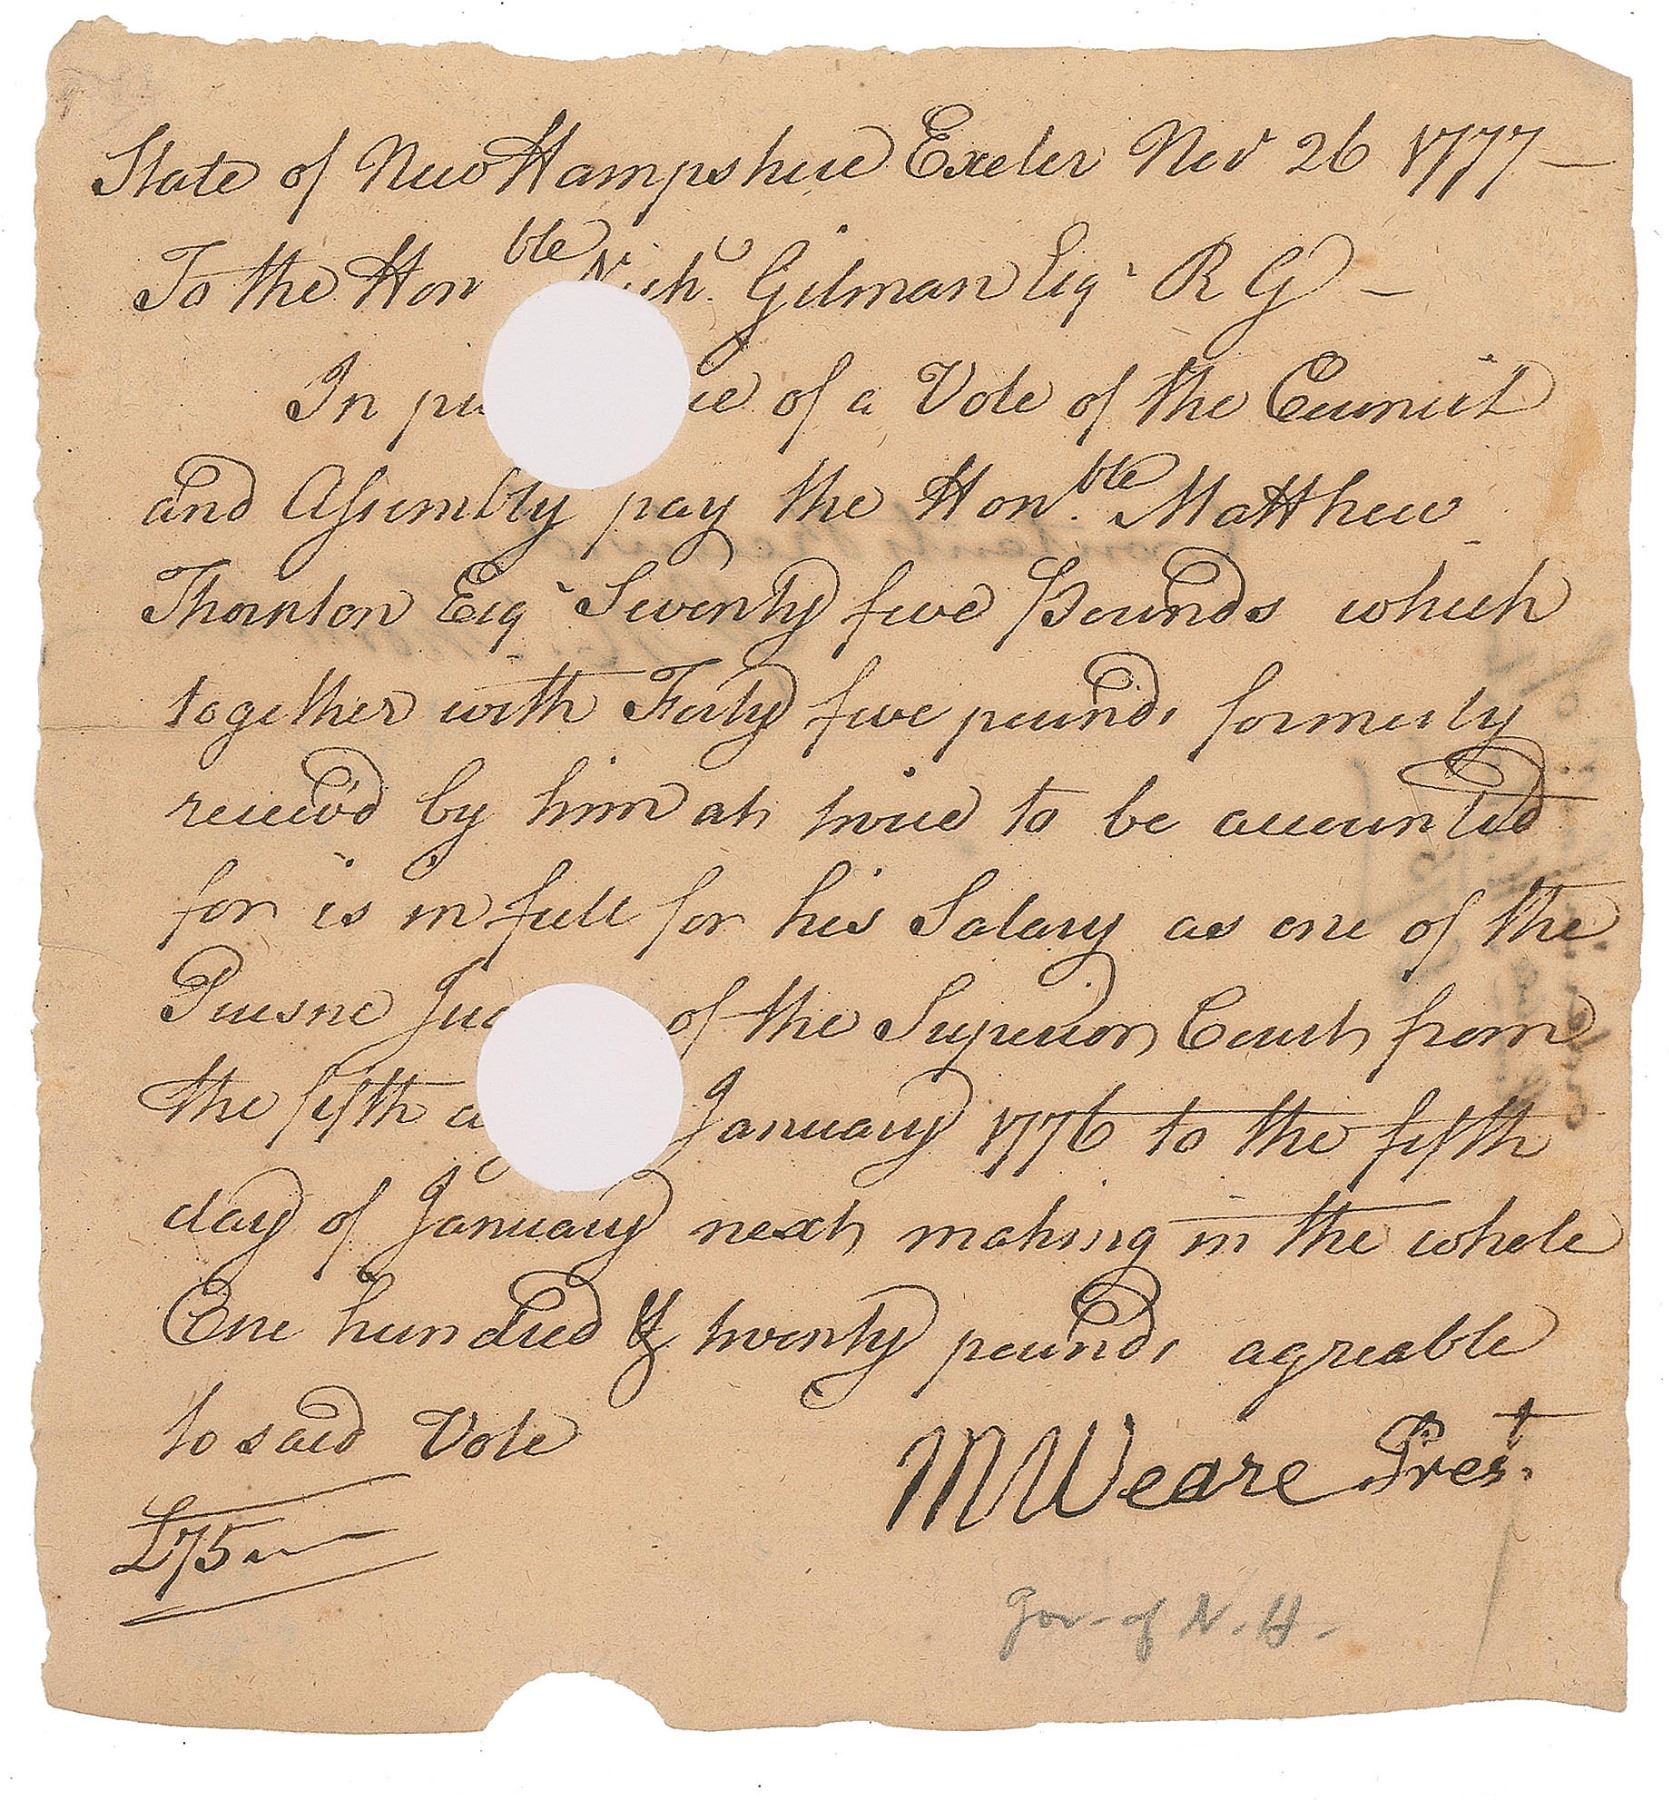 State of New Hampshire Exeter Nov 26 1777
To the Honble Nich. Gilman Esqr R G
In pu ce of a Vote of the Council
and Assembly pay the Honble Matthew
Thornton Esqr Seventy five Pounds which
together with Forty five pounds formerly
receiv'd by him at twice to be accounted
for is in full for his Salary as one of the
Puisne Jud of the Superior Court from
the fifth January 1776 to the fifth
day of January next making in the whole
One hundred & twenty pounds agreable
to said Vote
M Weare Prest
£75
Gov. of N. H.